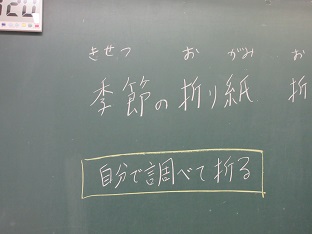 きせつ お がみ お
季節の折り紙 折
自分で調べて折る